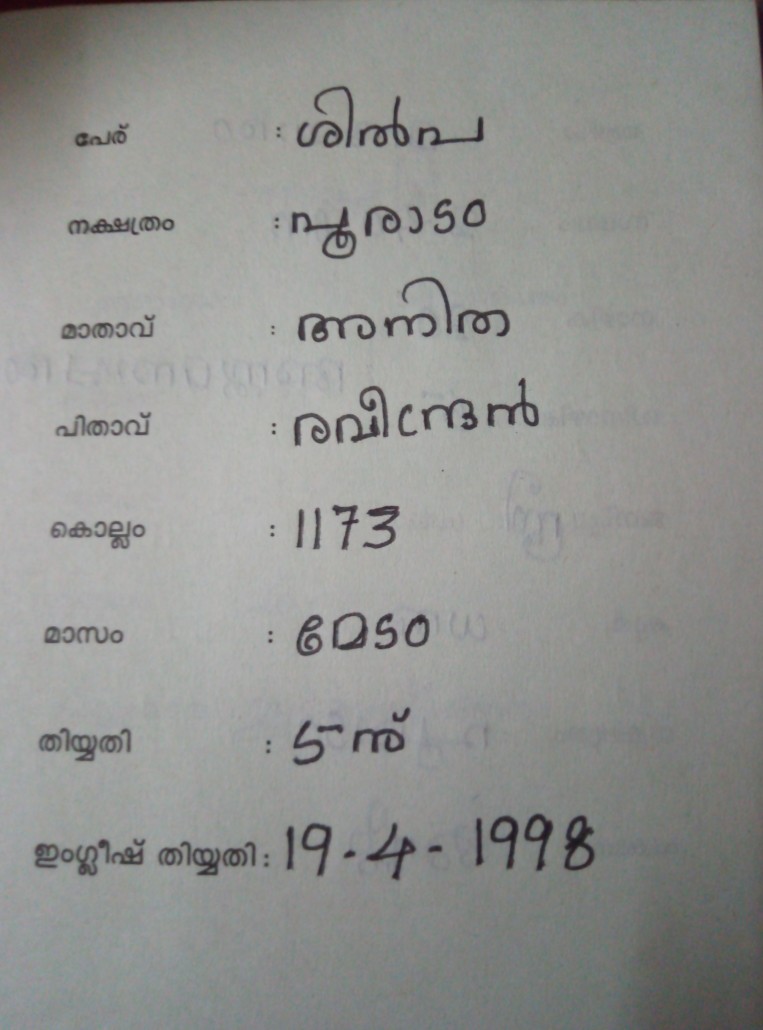 പേര് : ശിൽപ
നക്ഷത്രം : പൂരാടം
മാതാവ് : അനിത
പിതാവ് : രവീന്ദ്രൻ
കൊല്ലം : 1173
മാസം : മേടം
തിയ്യതി : 5-ന്
ഇംഗ്ലീഷ് തിയ്യതി : 19-4-1998